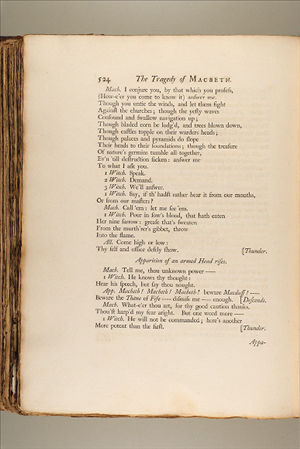 524 The Tragedy of MACBETH.
Macb. I conjure you, by that which you profess,
(Howe-e'er you come to know it) answer me.
Though you untie the winds, and let them fight
Against the churches; though the yesty waves
Confound and swallow navigation up;
Though bladed corn be lodg'd, and trees blown down,
Though castles topple on their warders heads;
Though palaces and pyramids do slope
Their heads to their foundations; though the treasure
Of nature's germins tumble all together,
Ev'n 'till destruction sicken: answer me
To what I ask you.
1 Witch. Speak.
2 Witch. Demand.
3 Witch. We'll answer.
1 Witch. Say, if th' hadst rather hear it from our mouths,
Or from our masters?
Macb. Call 'em: let me see 'em.
1 Witch. Pour in sow's blood, that hath eaten
Her nine farrow: grease that's sweaten
From the murth'rer's gibbet, throw
Into the flame.
All. Come high or low:
Thy self and office deftly show. [Thunder.
Apparition of an armed Head rises.
Macb. Tell me, thou unknown power —
1 Witch. He knows thy thought:
Hear his speech, but say thou nought.
App. Macbeth! Macbeth! Macbeth! beware Macduff! —
Beware the Thane of Fife — dismiss me — enough. [Descends.
Macb. What-e'er thou art, for thy good caution thanks.
Thou'st harp'd my fear aright. But one word more —
1 Witch. He will not be commanded; here's another
More potent than the first. [Thunder.
Appa-